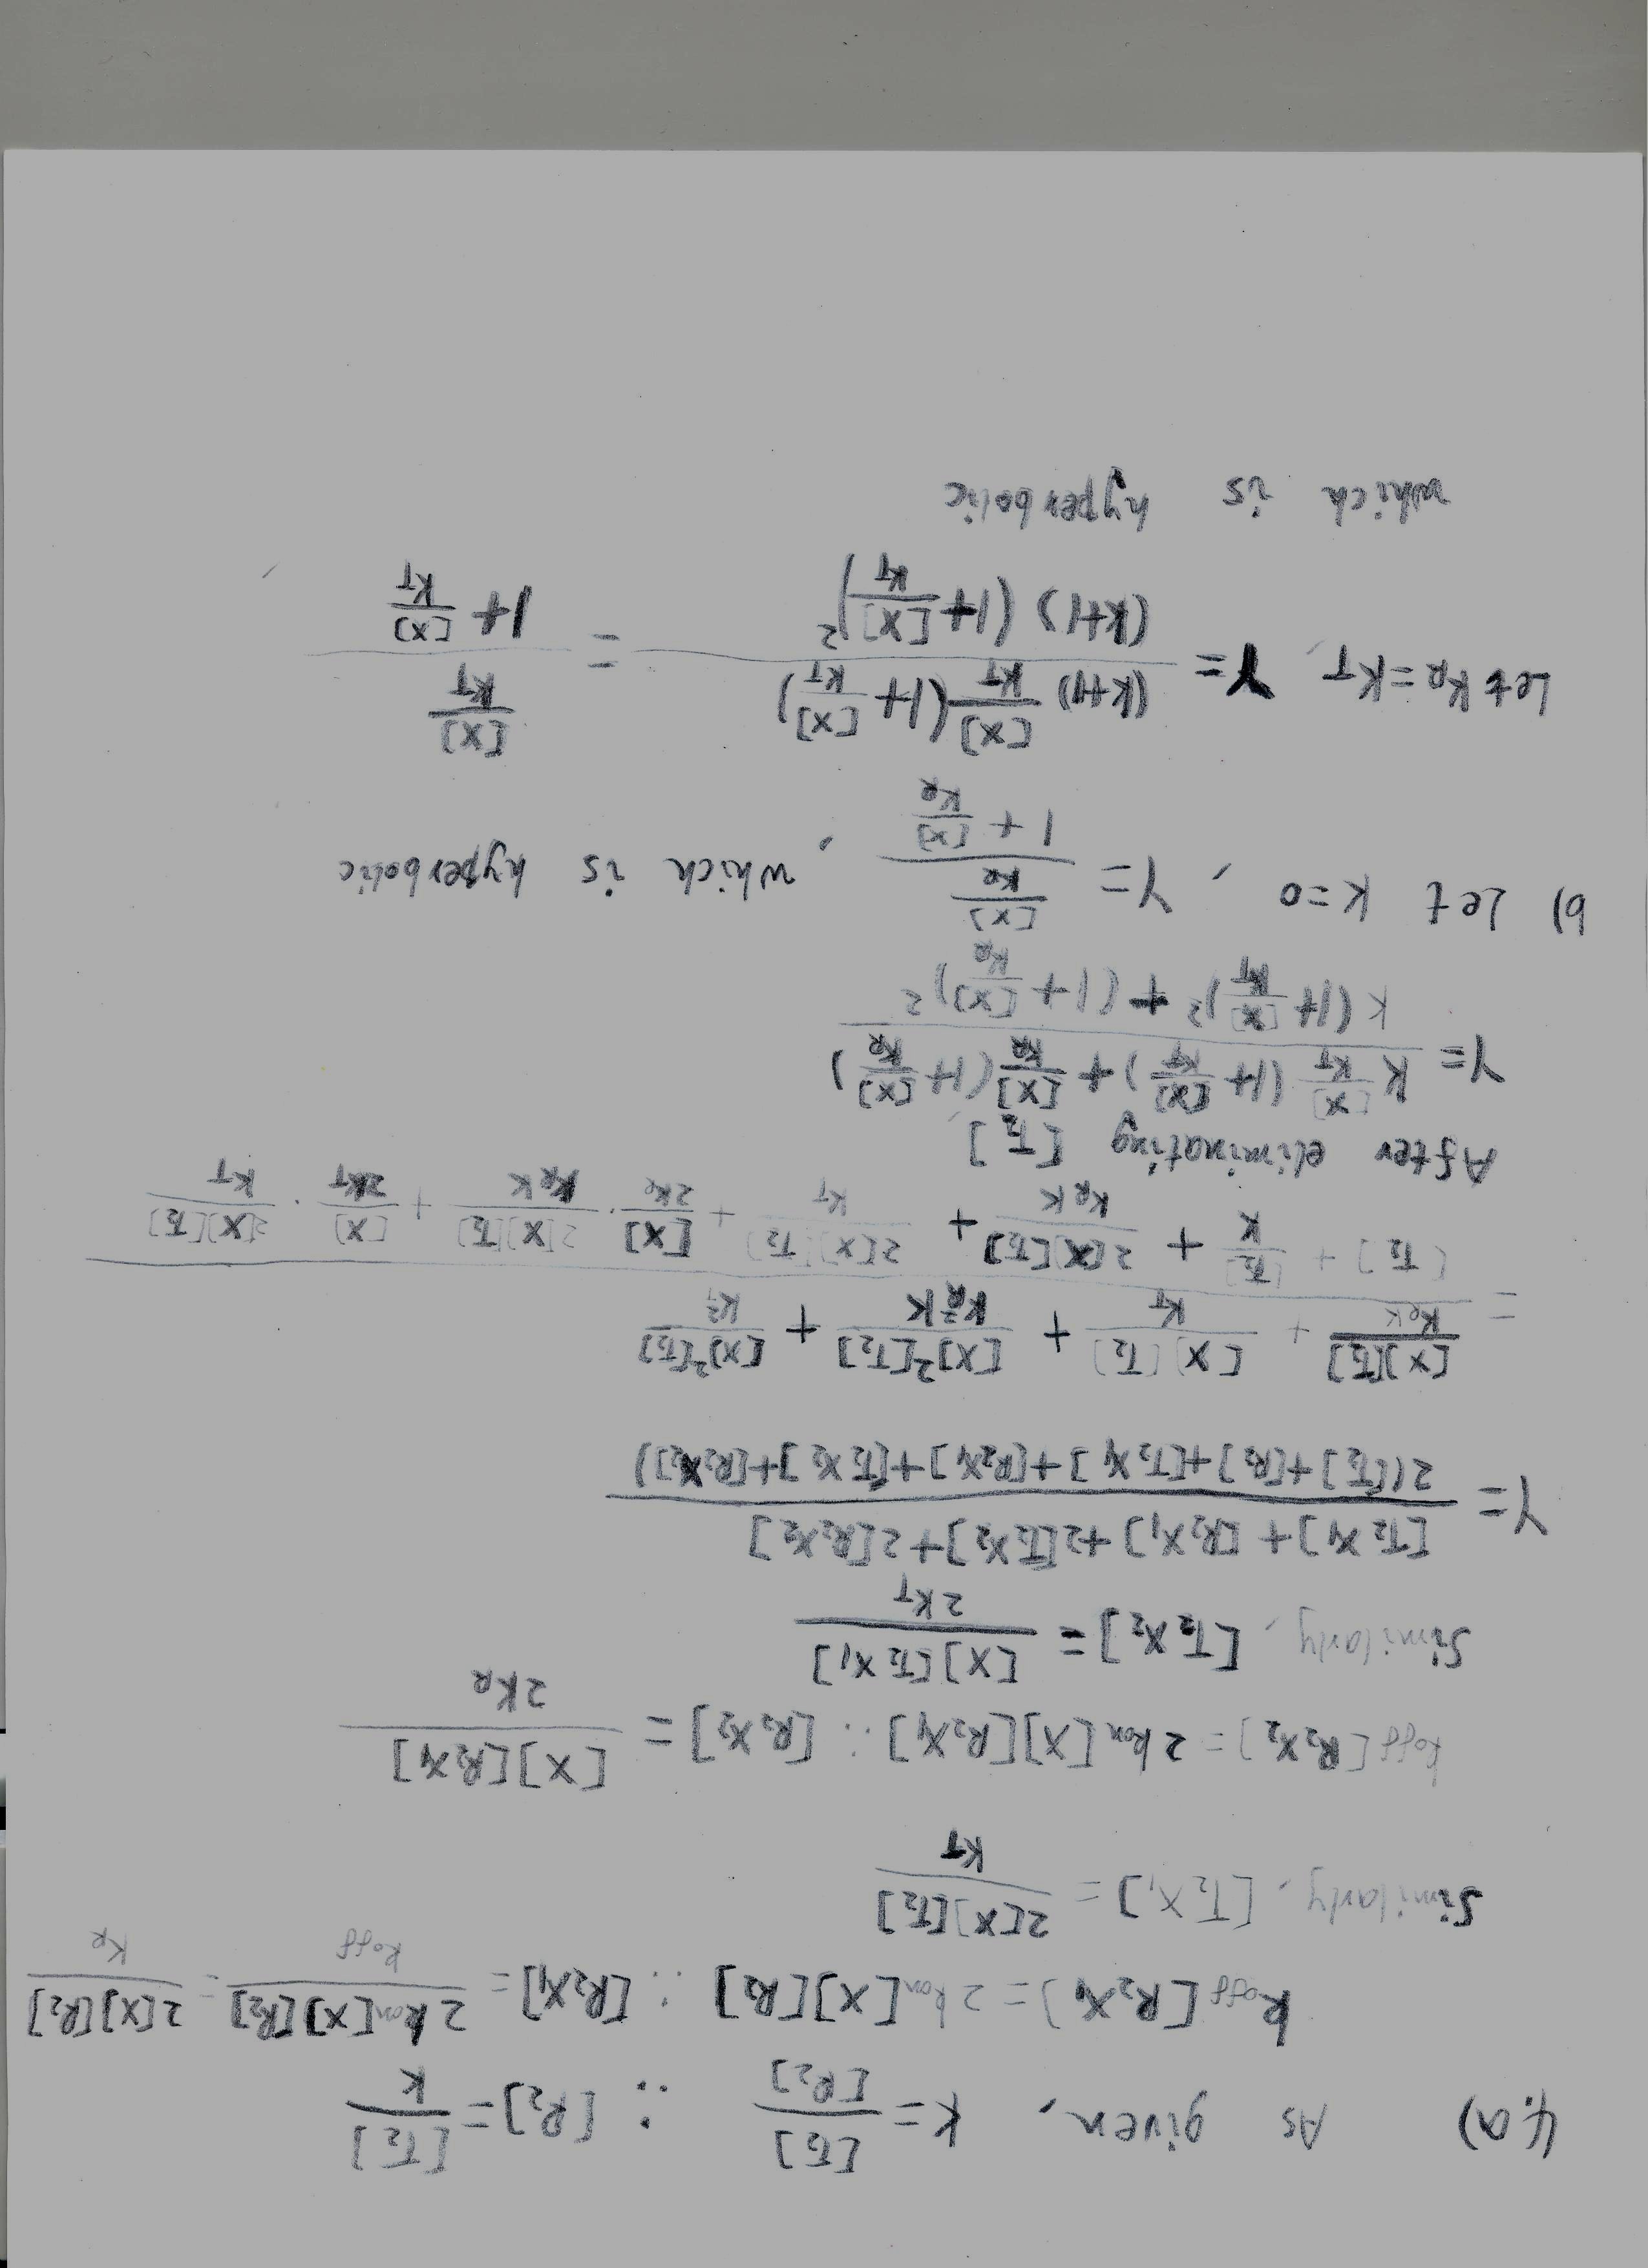 4. a) As given, K = [T2]/[R2] ∴ [R2] = [T2]/K
koff [R2X1] = 2kon [X][R2] ∴ [R2X1] = 2kon[X][R2]/koff = 2[X][R2]/KR
Similarly, [T2X1] = 2[X][T2]/KT
koff [R2X2] = 2kon [X][R2X1] ∴ [R2X2] = [X][R2X1]/2KR
Similarly, [T2X2] = [X][T2X1]/2KT
Y = ([T2X1] + [R2X1] + 2[T2X2] + 2[R2X2]) / 2([T2] + [R2] + [T2X1] + [R2X1] + [T2X2] + [R2X2])
= ([X][T2]/KRK + [X][T2]/KT + [X]²[T2]/KR²K + [X]²[T2]/KT²) / ([T2] + [T2]/K + 2[X][T2]/KRK + 2[X][T2]/KT + [X]/2KR · 2[X][T2]/KRK + [X]/2KT · 2[X][T2]/KT)
After eliminating [T2]
Y = (K [X]/KT (1+[X]/KT) + [X]/KR (1+[X]/KR)) / (K(1+[X]/KT)² + (1+[X]/KR)²)
b) Let K=0, Y = ([X]/KR) / (1+[X]/KR), which is hyperbolic
Let KR = KT, Y = ((K+1) [X]/KT (1+[X]/KT)) / ((K+1) (1+[X]/KT)²) = ([X]/KT) / (1+[X]/KT)
which is hyperbolic